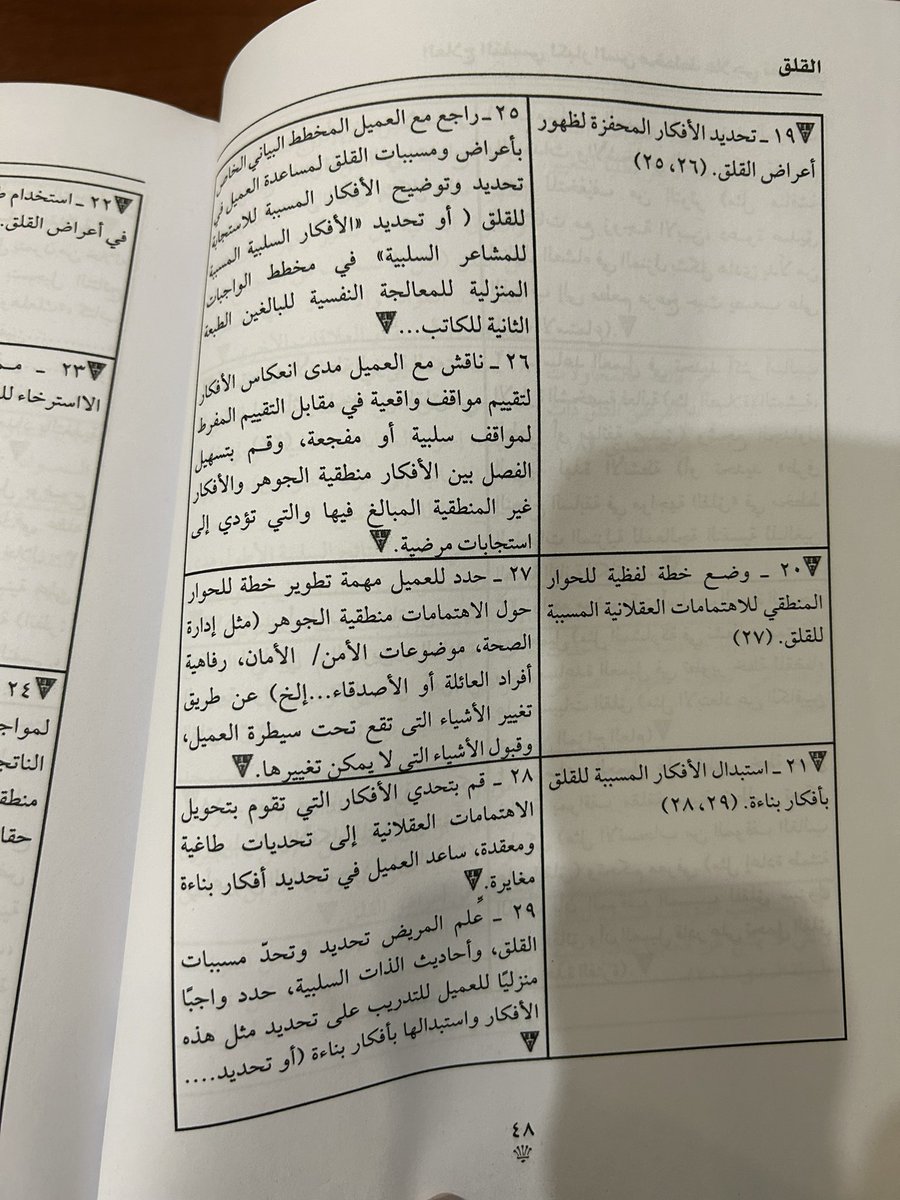 القلق
١٩ ـ تحديد الأفكار المحفزة لظهور
أعراض القلق. (٢٥، ٢٦)
٢٥ ـ راجع مع العميل المخطط البياني الخاص
بأعراض ومسببات القلق لمساعدة العميل في
تحديد وتوضيح الأفكار المسببة للاستجابة
للقلق ( أو تحديد «الأفكار السلبية المسببة
للمشاعر السلبية» في مخطط الواجبات
المنزلية للمعالجة النفسية للبالغين الطبعة
الثانية للكاتب...
٢٦ ـ ناقش مع العميل مدى انعكاس الأفكار
لتقييم مواقف واقعية في مقابل التقييم المفرط
لمواقف سلبية أو مفجعة، وقم بتسهيل
الفصل بين الأفكار منطقية الجوهر والأفكار
غير المنطقية المبالغ فيها والتي تؤدي إلى
استجابات مرضية.
٢٠ ـ وضع خطة لفظية للحوار
المنطقي للاهتمامات العقلانية المسببة
للقلق. (٢٧)
٢٧ ـ حدد للعميل مهمة تطوير خطة للحوار
حول الاهتمامات منطقية الجوهر (مثل إدارة
الصحة، موضوعات الأمن/ الأمان، رفاهية
أفراد العائلة أو الأصدقاء...إلخ) عن طريق
تغيير الأشياء التى تقع تحت سيطرة العميل،
وقبول الأشياء التى لا يمكن تغييرها.
٢١ ـ استبدال الأفكار المسببة للقلق
بأفكار بناءة. (٢٨، ٢٩)
٢٨ ـ قم بتحدي الأفكار التي تقوم بتحويل
الاهتمامات العقلانية إلى تحديات طاغية
ومعقدة، ساعد العميل في تحديد أفكار بناءة
مغايرة.
٢٩ ـ عِّلم المريض تحديد وتحدّ مسببات
القلق، وأحاديث الذات السلبية، حدد واجبًا
منزليًا للعميل للتدريب على تحديد مثل هذه
الأفكار واستبدالها بأفكار بناءة (أو تحديد....
٤٨
٢٢ ـ استخدام
في أعراض القلق.
٢٣ ـ
الااسترخاء
٢٤